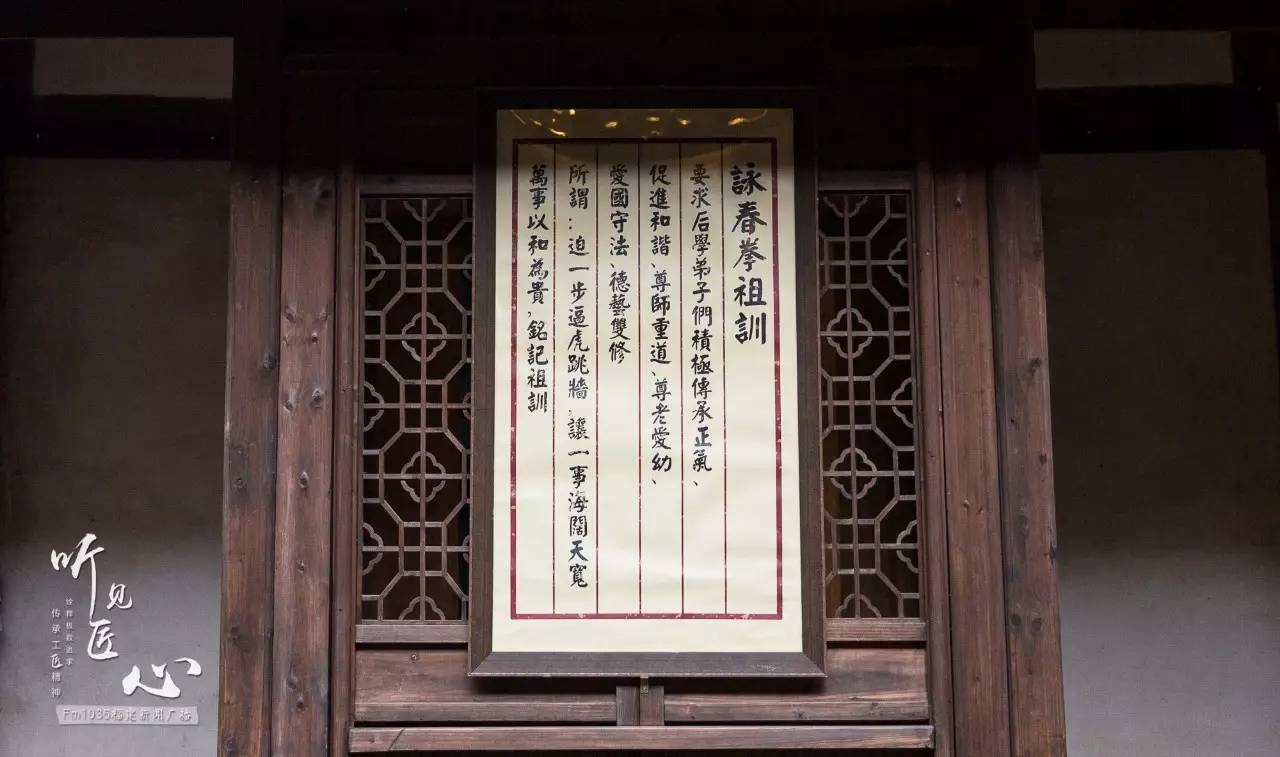 詠春拳祖訓
要求后學弟子們積極傳承正氣、
促進和諧、尊師重道、尊老愛幼、
愛國守法、德藝雙修
所謂：迫一步逼虎跳牆，讓一事海闊天寬
萬事以和為貴，銘記祖訓
听见匠心
诠释极致追求
传承工匠精神
Fm1036福建新闻广播